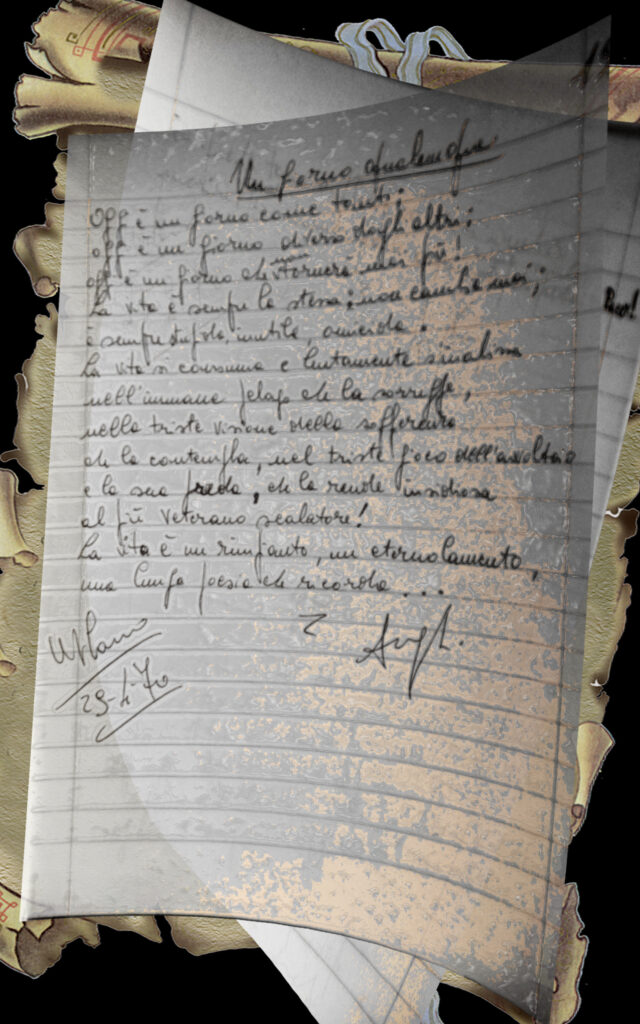 Un giorno qualunque
Oggi è un giorno come tanti;
oggi è un giorno diverso dagli altri;
oggi è un giorno che non ritornerà mai più!
La vita è sempre la stessa: non cambia mai;
è sempre stupida, inutile, omicida.
La vita si consuma e lentamente
nell'immane pelago che la sorregge,
nella triste visione della sofferenza
che la contempla, nel triste gioco dell'avvoltoio
e la sua preda, che la rende insidiosa
al più veterano scalatore!
La vita è un rimpianto, un eterno lamento,
una lunga poesia che ricorda . . .
Milano
29-4-70